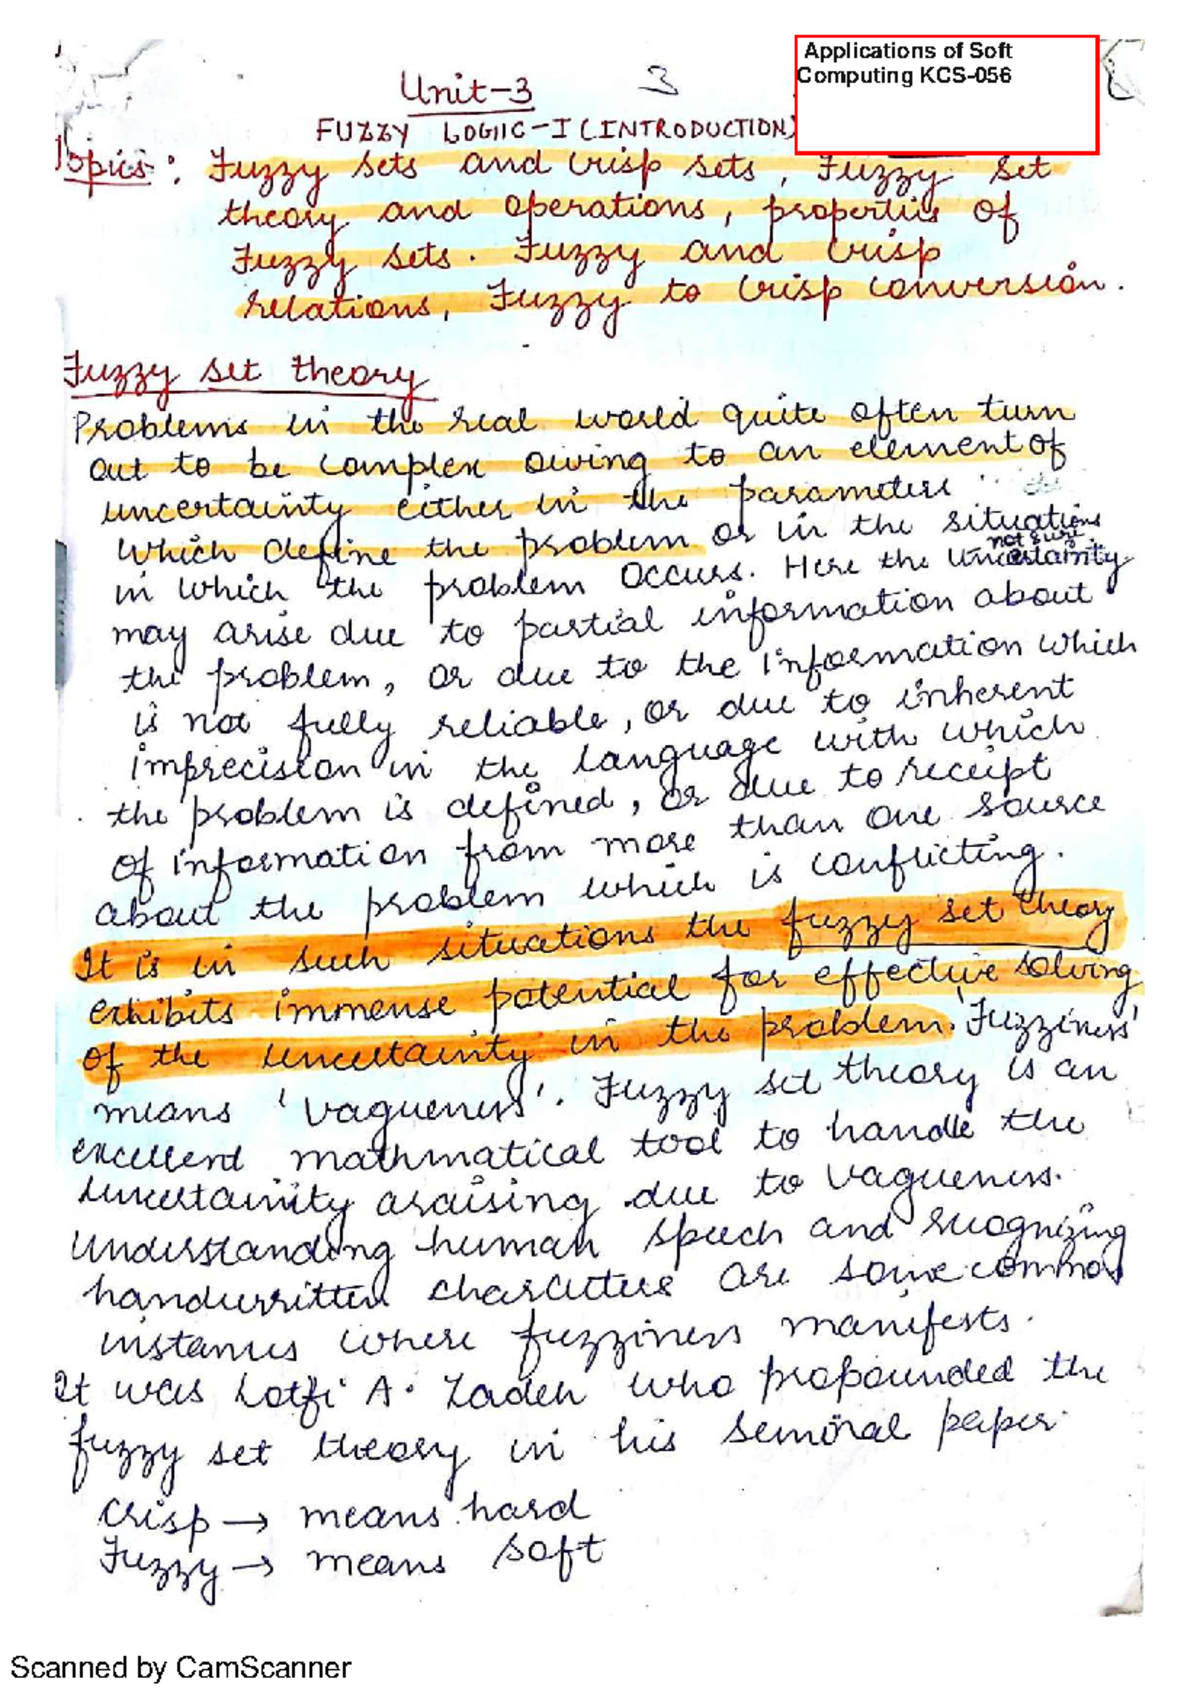 Applications of Soft
Computing KCS-056
Unit-3 3
FUZZY LOGIIC-I (INTRODUCTION)
Topics: Fuzzy sets and Crisp sets, Fuzzy set
theory and operations, properties of
Fuzzy sets. Fuzzy and Crisp
relations, Fuzzy to Crisp conversion.
Fuzzy set theory
Problems in the real world quite often turn
out to be complex owing to an element of
uncertainty either in the parameters
which define the problem or in the situations
not sure
in which the problem occurs. Here the Uncertainity
may arise due to partial information about
the problem, or due to the information which
is not fully reliable, or due to inherent
imprecision in the language with which
the problem is defined, or due to receipt
of information from more than one source
about the problem which is conflicting.
It is in such situations the fuzzy set theory
exhibits immense potential for effective solving
of the uncertainity in the problem. 'Fuzziness'
means 'vagueness'. Fuzzy set theory is an
excellent mathmatical tool to handle the
uncertainity araising due to vagueness.
understanding human speech and recognizing
handwritten characters are some common
instances where fuzziness manifests.
It was Lotfi A. Zadeh who propounded the
fuzzy set theory in his seminal paper.
Crisp → means hard
Fuzzy → means soft
Scanned by CamScanner